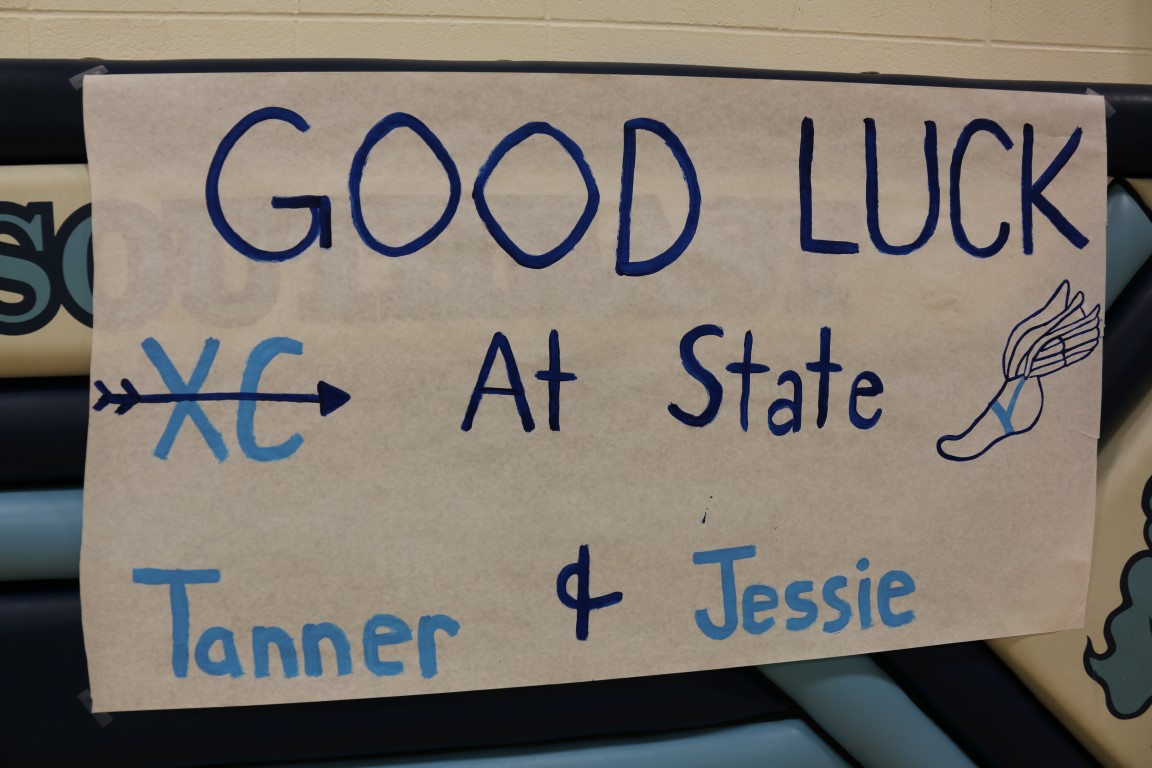 GOOD LUCK
XC At State
Tanner & Jessie